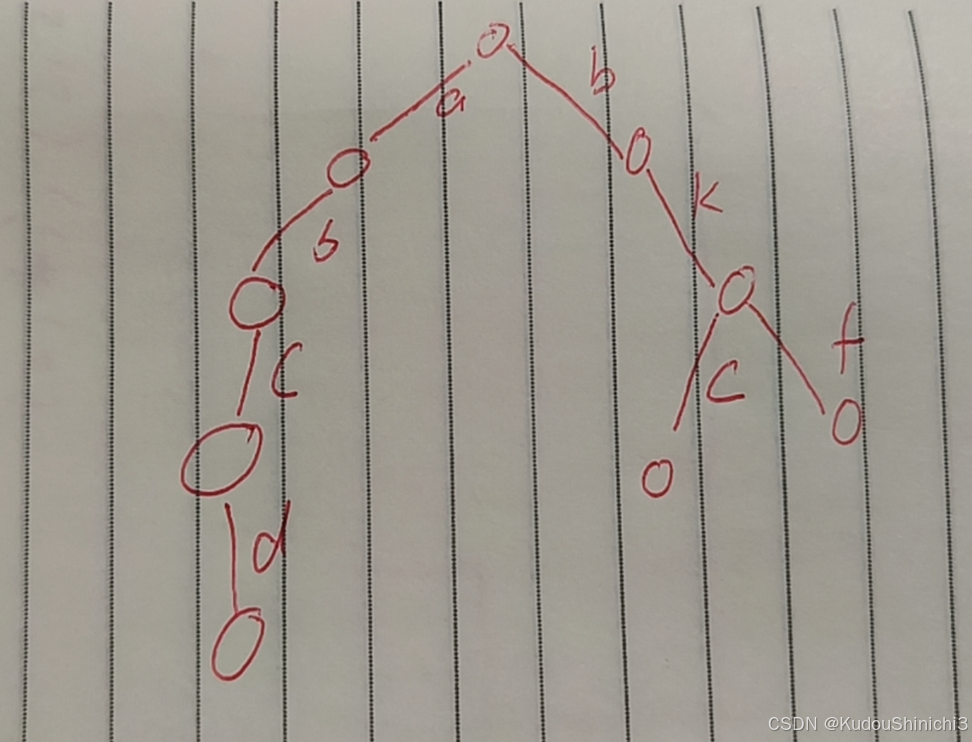 a
b
b
k
c
f
c
d
CSDN @KudouShinichi3